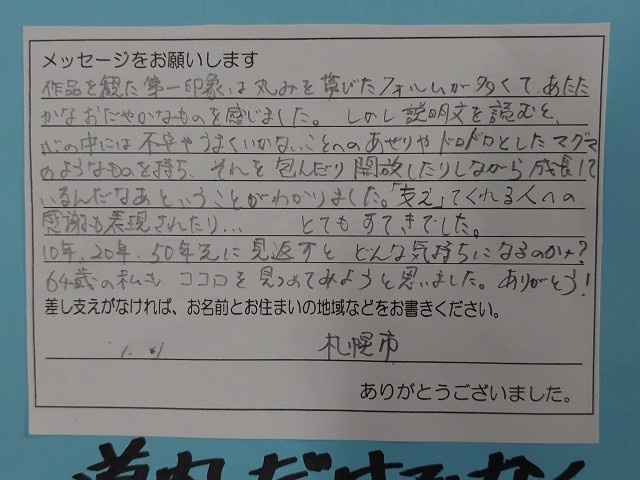 メッセージをお願いします
作品を観た第一印象は丸みを帯びたフォルムが多くて、あたた
かなおだやかなものを感じました。しかし説明文を読むと、
心の中には不安やうまくいかないことへのあせりやドロドロとしたマグマ
のようなものを持ち、それを包んだり開放したりしながら成長して
いるんだなあということがわかりました。「支え」てくれる人への
感謝も表現されたり… とてもすてきでした。
10年、20年、50年先に見返すとどんな気持ちになるのかな?
64歳の私もココロを見つめてみようと思いました。ありがとう!
差し支えがなければ、お名前とお住まいの地域などをお書きください。
札幌市
ありがとうございました。
道内だけでなく